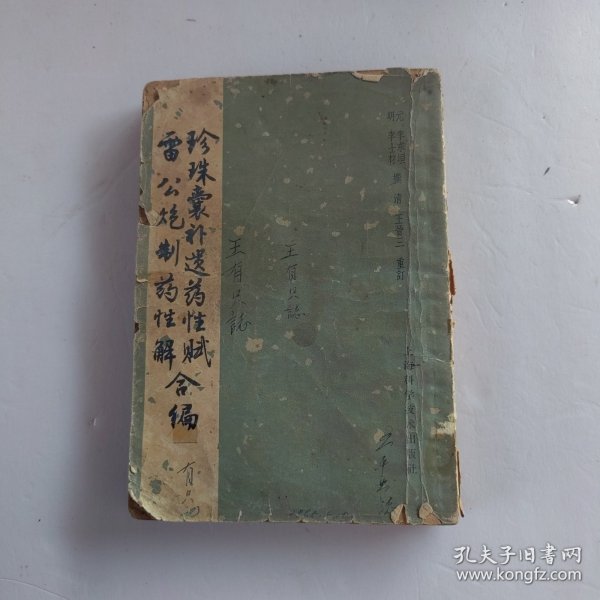 元 李杲 撰 清 王晋三 重訂
明 李士材
上海科学技术出版社
珍珠囊补遗药性赋
雷公炮制药性解 合编
王有只誌
王有只誌
孔夫子旧书网
www.kongfz.com